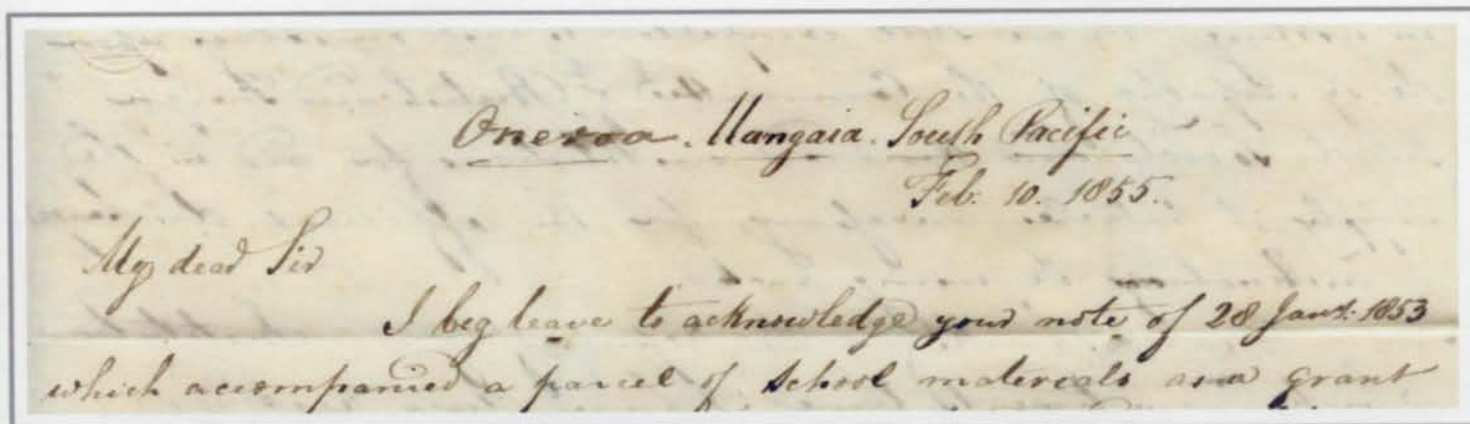 Oneroa. Mangaia. South Pacific
Feb. 10. 1855.
My dear Sir
I beg leave to acknowledge your note of 28 Jany. 1853
which accompanied a parcel of school materials as a grant